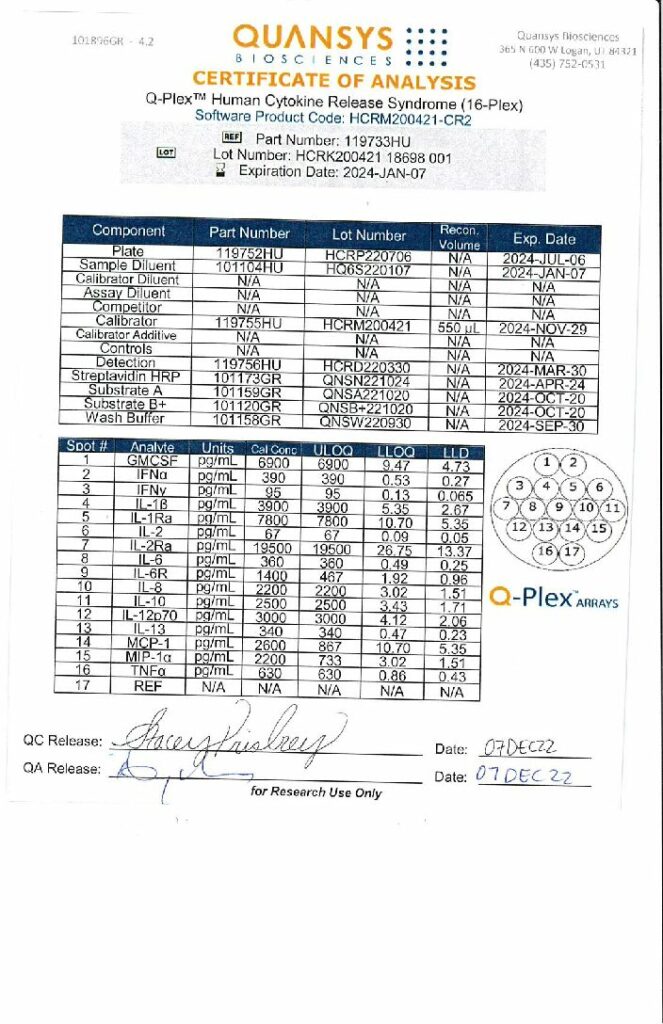 101896GR - 4.2
QUANSYS
BIOSCIENCES
Quansys Biosciences
365 N 600 W Logan, UT 84321
(435) 752-0531
CERTIFICATE OF ANALYSIS
Q-Plex™ Human Cytokine Release Syndrome (16-Plex)
Software Product Code: HCRM200421-CR2
REF Part Number: 119733HU
LOT Lot Number: HCRK200421 18698 001
Expiration Date: 2024-JAN-07
Component Part Number Lot Number Recon. Volume Exp. Date
Plate 119752HU HCRP220706 N/A 2024-JUL-06
Sample Diluent 101104HU HQ6S220107 N/A 2024-JAN-07
Calibrator Diluent N/A N/A N/A N/A
Assay Diluent N/A N/A N/A N/A
Competitor N/A N/A N/A N/A
Calibrator 119755HU HCRM200421 550 µL 2024-NOV-29
Calibrator Additive N/A N/A N/A N/A
Controls N/A N/A N/A N/A
Detection 119756HU HCRD220330 N/A 2024-MAR-30
Streptavidin HRP 101173GR QNSN221024 N/A 2024-APR-24
Substrate A 101159GR QNSA221020 N/A 2024-OCT-20
Substrate B+ 101120GR QNSB+221020 N/A 2024-OCT-20
Wash Buffer 101158GR QNSW220930 N/A 2024-SEP-30
Spot # Analyte Units Cal Conc ULOQ LLOQ LLD
1 GMCSF pg/mL 6900 6900 9.47 4.73
2 IFNα pg/mL 390 390 0.53 0.27
3 IFNγ pg/mL 95 95 0.13 0.065
4 IL-1ß pg/mL 3900 3900 5.35 2.67
5 IL-1Ra pg/mL 7800 7800 10.70 5.35
6 IL-2 pg/mL 67 67 0.09 0.05
7 IL-2Ra pg/mL 19500 19500 26.75 13.37
8 IL-6 pg/mL 360 360 0.49 0.25
9 IL-6R pg/mL 1400 467 1.92 0.96
10 IL-8 pg/mL 2200 2200 3.02 1.51
11 IL-10 pg/mL 2500 2500 3.43 1.71
12 IL-12p70 pg/mL 3000 3000 4.12 2.06
13 IL-13 pg/mL 340 340 0.47 0.23
14 MCP-1 pg/mL 2600 867 10.70 5.35
15 MIP-1α pg/mL 2200 733 3.02 1.51
16 TNFα pg/mL 630 630 0.86 0.43
17 REF N/A N/A N/A N/A N/A
1 2
3 4 5 6
7 8 9 10 11
12 13 14 15
16 17
Q-Plex™ ARRAYS
QC Release: Stacey Date: 07DEC22
QA Release: Date: 07 DEC 22
for Research Use Only